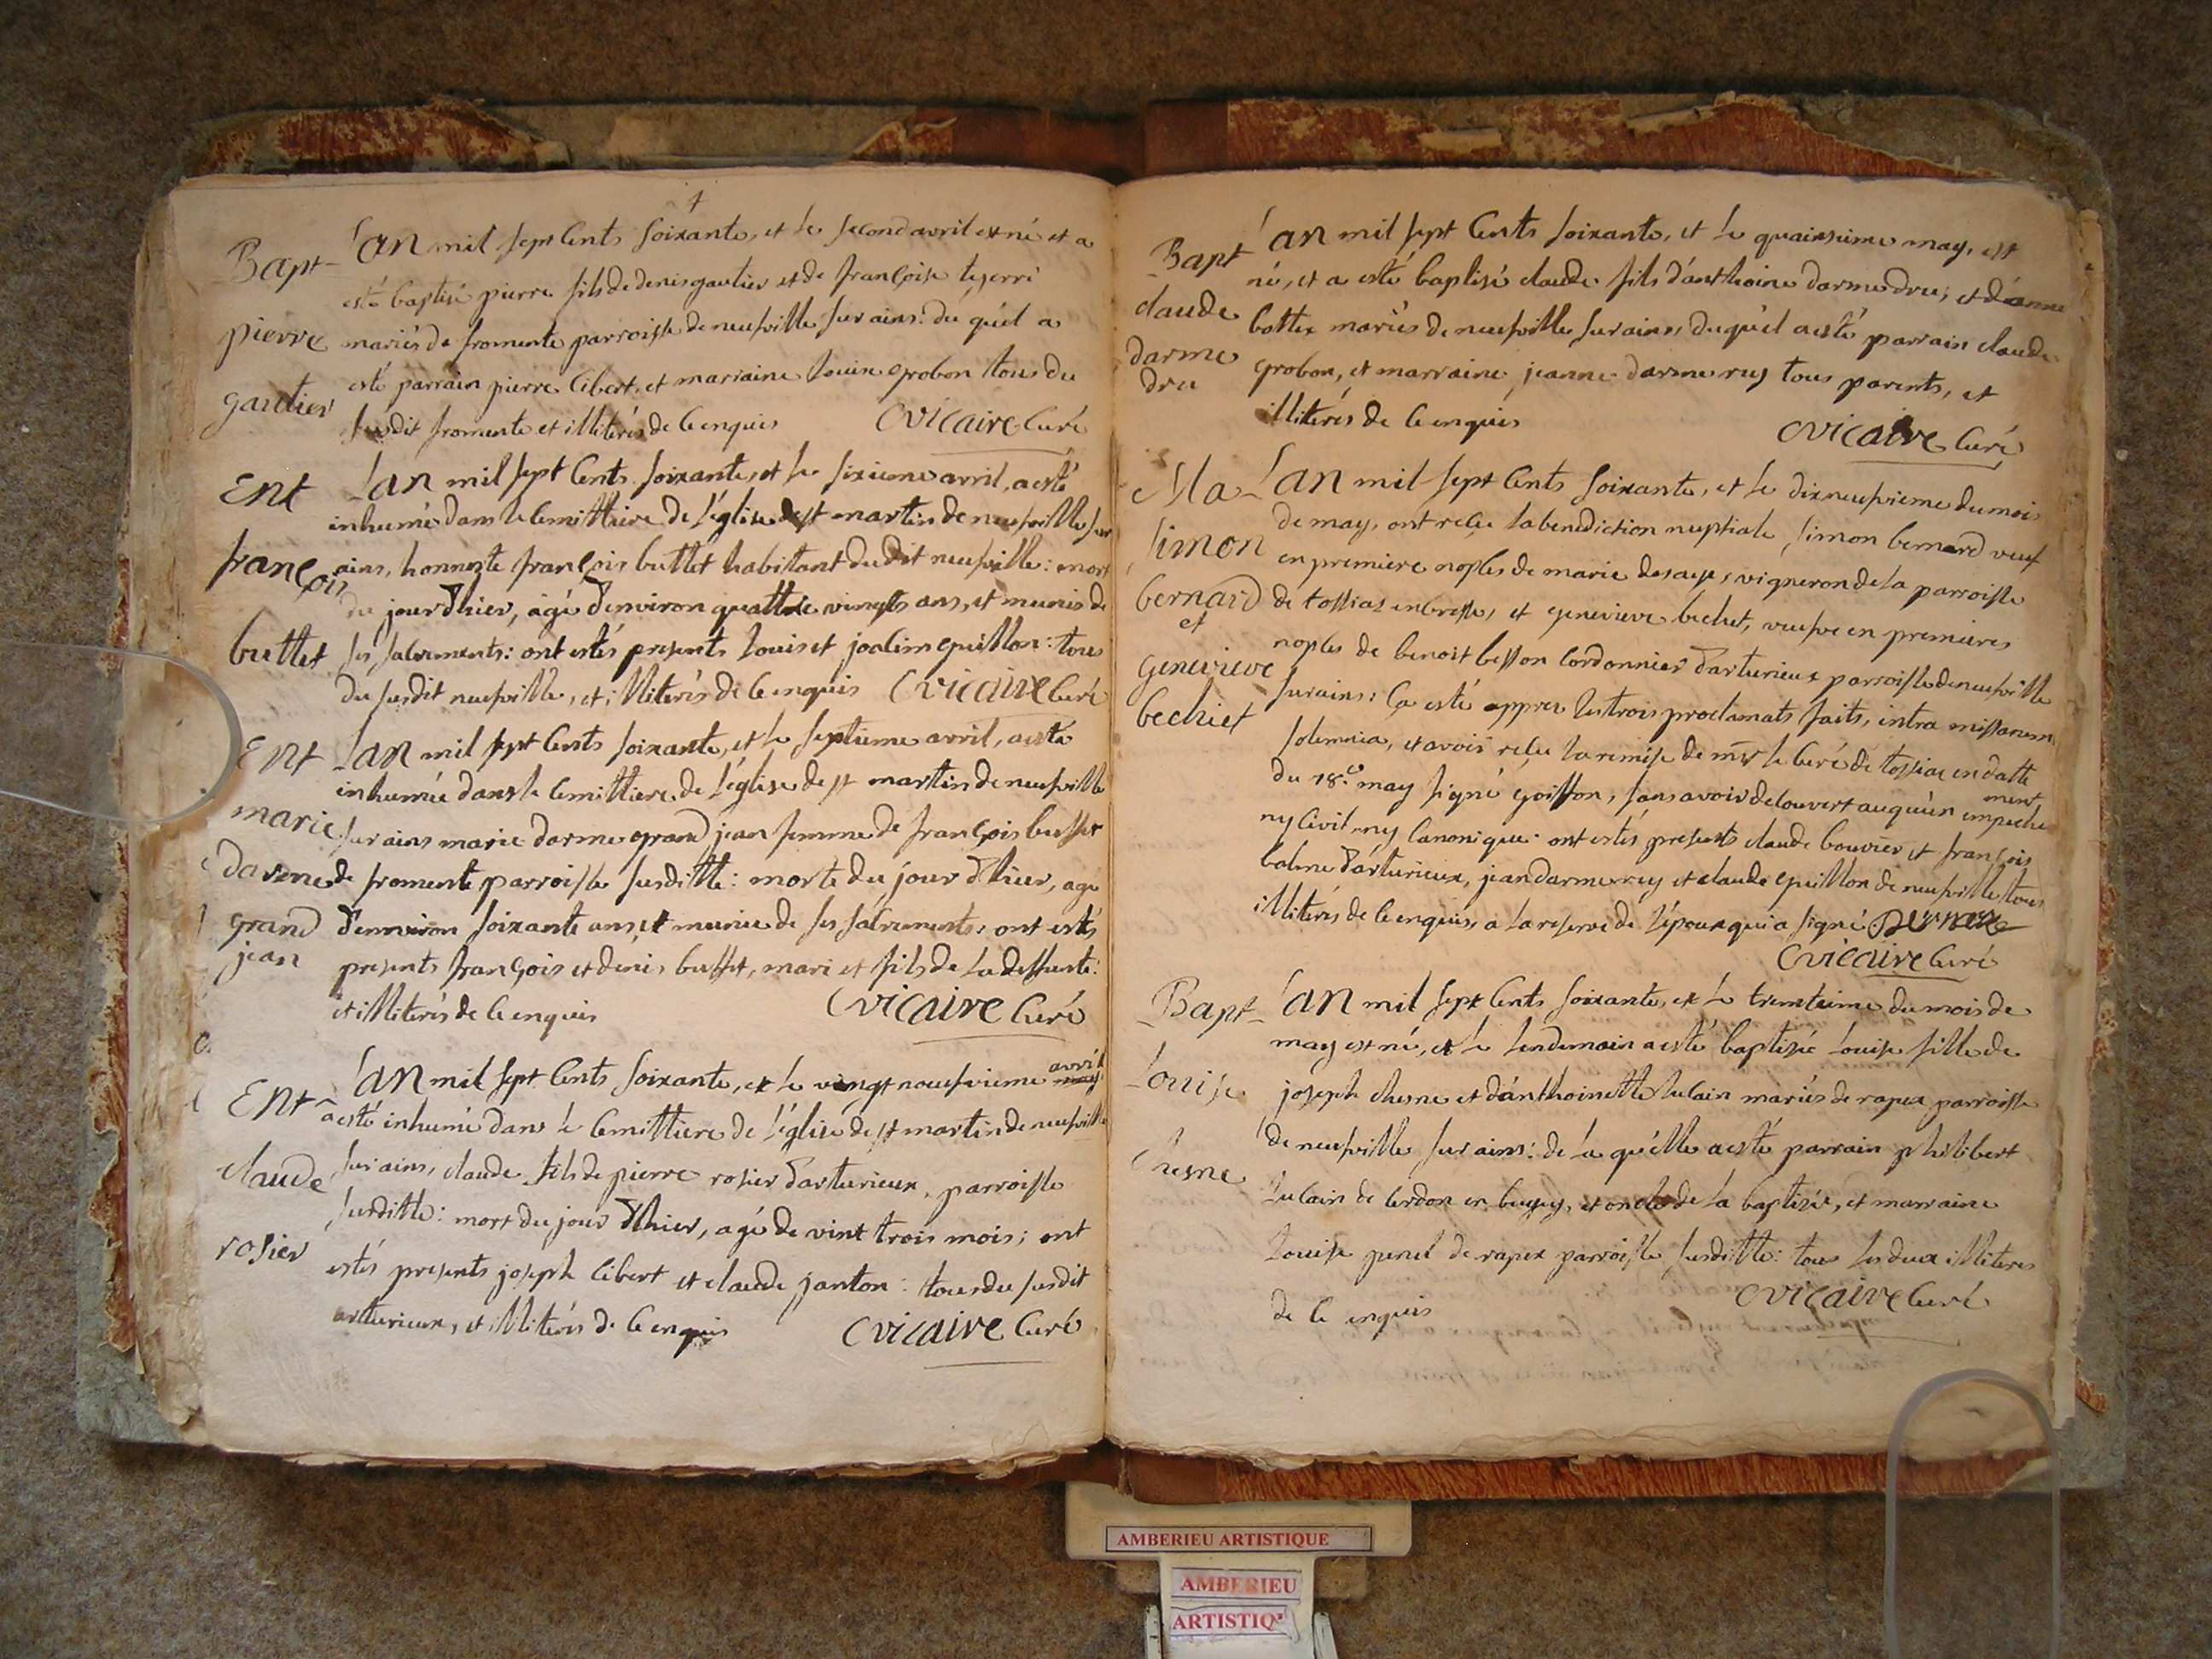 Bapt
pierre
gautier
Lan mil sept Cents soixante, et le second avril est né et a
esté baptisé pierre fils de denis gautier et de françoise
mariés de fromente parroisse de neufville sur ains: du qu'el a
esté parrain pierre Cibert, et marraine Louise grobon tous du
susdit fromente et illitérés de ce enquis Cvicaire Curé
Ent
françois
buttet
Lan mil sept Cents soixante, et le sixieme avril, a esté
inhumé dans le Cemittiere de l'église de st martin de neufville sur
ains, honneste françois buttet habitant dudit neufville: mort
du jour d'hier, agé d'environ quattre vingts ans, et munis de
ses sacrements: ont estés presents Louis et joacim guillon: tous
du susdit neufville, et illiterés de ce enquis Cvicaire Curé
Ent
marie
darme
grand
jean
Lan mil sept Cents soixante, et le septieme avril, a esté
inhumée dans le Cemittiere de l'église de st martin de neufville
sur ains marie darme grand jean femme de françois buffet
de fromente parroisse susditte: morte du jour d'hier, agé
d'environ soixante ans, et munie de ses sacrements: ont estés
presents françois et denis buffet, mari et fils de la deffunte:
et illiterés de ce enquis Cvicaire Curé
Ent
claude
rosier
Lan mil sept Cents soixante, et le vingt neufvieme avril
a esté inhumé dans le Cemittiere de l'église de st martin de neufville
sur ains, claude fils de pierre rosier d'arturieux, parroisse
susditte: mort du jour d'hier, agé de vint trois mois; ont
estés presents joseph Cibert et claude janton: tous du susdit
arturieux, et illiterés de ce enquis Cvicaire Curé
Bapt
claude
darme
dru
Lan mil sept Cents soixante, et le quinzieme may, est
né, et a esté baptisé claude fils d'anthoine darme dru, et d'anne
bottex mariés de neufville sur ains, duqu'el a esté parrain claude
grobon, et marraine jeanne darme rey tous parents, et
illiterés de ce enquis Cvicaire Curé
Ma
simon
bernard
et
genevieve
bechet
Lan mil sept Cents soixante, et le dixneufvieme du mois
de may, ont reçu la benediction nuptiale, simon bernard veuf
en premiere nopces de marie desaye, vigneron de la parroisse
de tossiat en bresse, et genevieve bechet, veufve en premieres
nopces de benoit besson Cordonnier d'arturieux parroisse de neufville
sur ains: Ça esté appres les trois proclamats faits, intra missarum
solemnia, et avoir reçu la remise de mr le Curé de tossiat en datte
du 18.e may signé goiffon, sans avoir decouvert auqu'un empeche
ment
ny Civil, ny Canonique: ont estés presents claude bouvier et françois
balme d'arturieux, jean darme rey et claude guillon de neufville tous
illiterés de ce enquis, a la reserve de l'époux qui a signé Bernard
Cvicaire Curé
Bapt
Louise
Chesne
Lan mil sept Cents soixante, et le trentieme du mois de
may est né, et le lendemain a esté baptisée Louise fille de
joseph chesne et d'anthoinette Lucain mariés de rapex parroisse
de neufville sur ains: de la qu'elle a esté parrain philibert
Lucain de Cerdon en bugey, et oncle de la baptisée, et marraine
Louise de rapex parroisse susditte: tous les deux illiteres
de ce enquis Cvicaire Curé
AMBERIEU ARTISTIQUE
AMBERIEU
ARTISTIQ